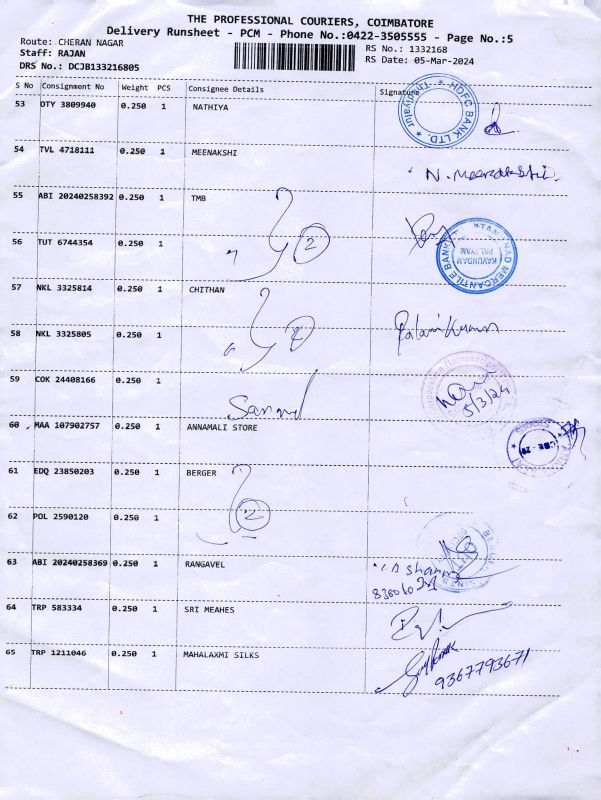 THE PROFESSIONAL COURIERS, COIMBATORE
Delivery Runsheet - PCM - Phone No.:0422-3505555 - Page No.:5
Route: CHERAN NAGAR
RS No.: 1332168
Staff: RAJAN
RS Date: 05-Mar-2024
DRS No.: DCJB133216805
S No Consignment No Weight PCS Consignee Details Signature
53 OTY 3809940 0.250 1 NATHIYA
HDFC BANK LTD.
54 TVL 4718111 0.250 1 MEENAKSHI
N. Meenakshi
55 ABI 20240258392 0.250 1 TMB
2
TAMILNAD MERCANTILE BANK
KAVUNDAM PALAYAM
56 TUT 6744354 0.250 1
57 NKL 3325814 0.250 1 CHITHAN
2
58 NKL 3325805 0.250 1
59 COK 24408166 0.250 1
5/3/24
60 MAA 107902757 0.250 1 ANNAMALI STORE
61 EDQ 23850203 0.250 1 BERGER
2
62 POL 2590120 0.250 1
63 ABI 20240258369 0.250 1 RANGAVEL
64 TRP 583334 0.250 1 SRI MEAHES
65 TRP 1211046 0.250 1 MAHALAXMI SILKS
9367793671